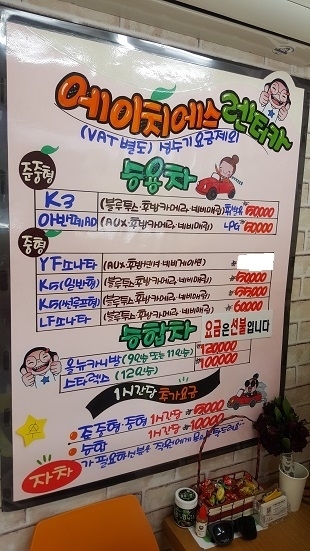 에이치에스 렌터카
(VAT별도) 성수기 요금제외
준중형
승용차
K3 (블루투스·후방카메라·네비매립) 휘발유 ₩50000
아반떼AD (AUX·후방카메라·네비매립) LPG ₩50000
중형
YF소나타 (AUX·후방카메라·네비게이션)
K5(일반형) (블루투스·후방카메라·네비매립) ₩50000
K5(썬루프형) (블루투스·후방카메라·네비매립) ₩55000
LF소나타 (블루투스·후방카메라·네비매립) ₩60000
승합차
요금은 선불입니다
올뉴카니발 (9인승 또는 11인승) ₩120000
스타렉스 (12인승) ₩100000
1시간당 추가요금
준중형·중형 1시간당 ₩5000
승합 1시간당 ₩10000
자차
가 필요하신분은 직원에게